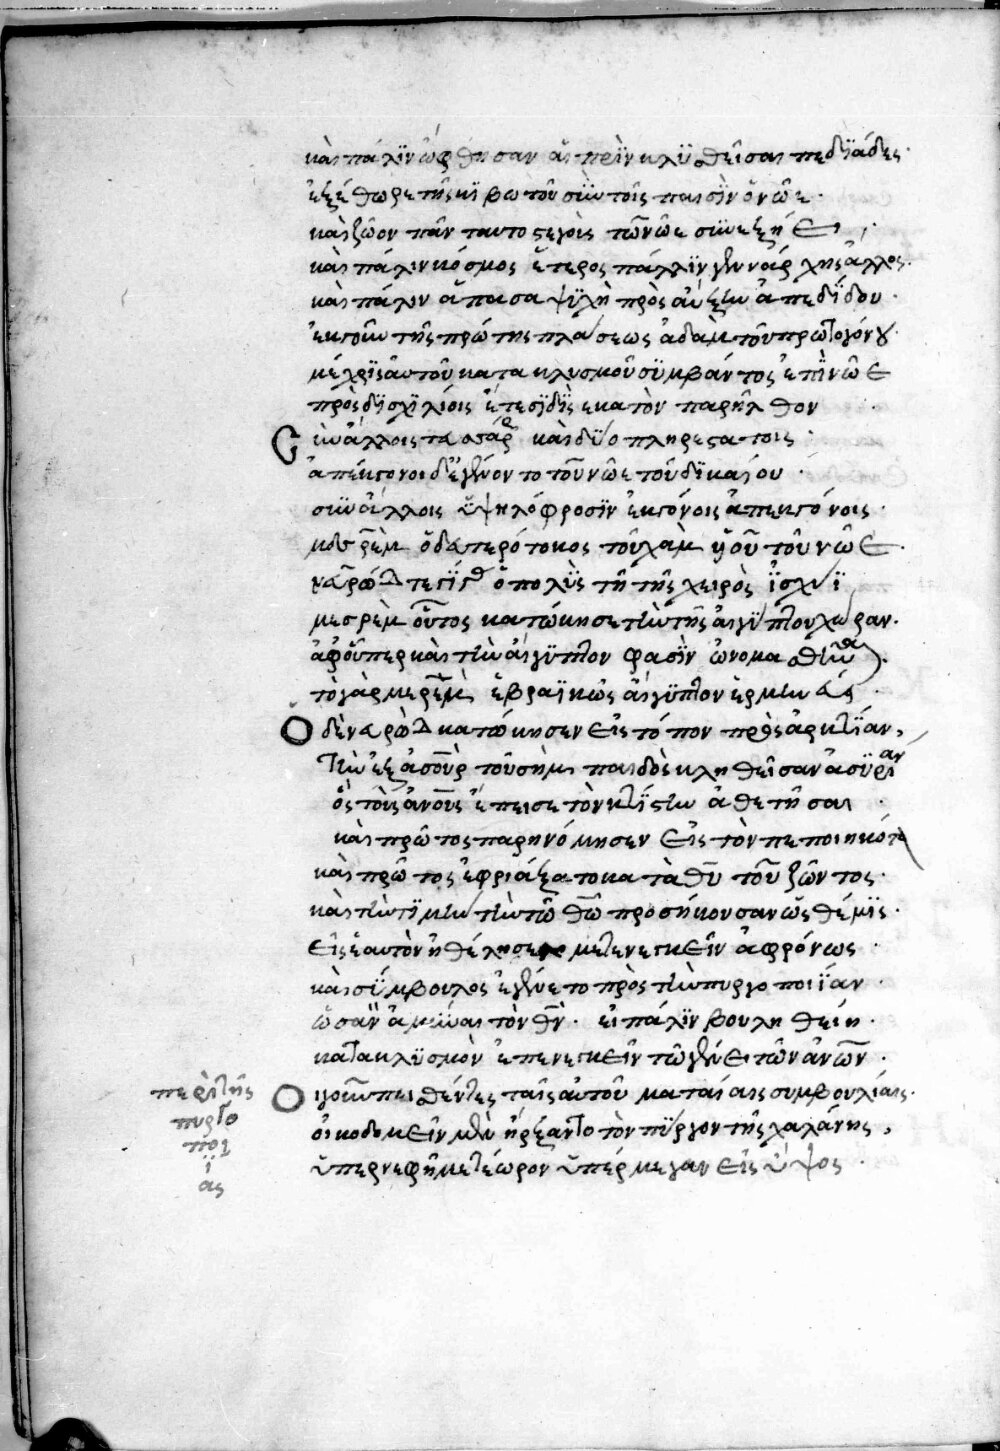 καὶ πάλϊν ὤφθησαν αἱ πρὶν κλϋσθεῖσαι πεδϊάδες·
ἐξέθωρε τῆς κϊβωτοῦ σϋν τοῖς παισὶν ὁ νῶε·
καὶ ζῶον πᾶν ταυτοσεγὸις τῶ νῶε σϋνεξήει·
καὶ πάλιν κόσμος ἕτερος πάλλϊν γῆν νάρχης ἄλλος·
καὶ πάλιν ἅπασα ψϋχὴ πρὸς αὔξην ἀπεδίδου·
ἐκ γοῦν τῆς πρώτης πλάσεως ἀδὰμ τοῦ πρωτογόνου·
μέχρϊς αὐτοῦ κατακλυσμοῦ σϋμβάντος ἐπὶ νῶε
πρὸς δϊσχϊλίοις ἔτεσϊ δϊς ἑκατὸν παρῆλθον
σὺν ἄλλοις τεσσάρσ καὶ δύο πληρεστάτοις·
ἀπέκγονοι δ' ἐγένοντο τοῦ νῶε τοῦ δϊκαίου·
σϋν ἄλλοις ὑψηλόφροσϊν ἐκγόνοις ἀπεκγόνοις·
μεσρὲμ ὁ δευτερότοκος τοῦ χὰμ υἱοῦ τοῦ νῶε·
νευρώδ τε ὁ πολϋς τῆ τῆς χειρὸς ἰσχύϊ
μεσρὲμ οὗτος κατώκησε τὴν τῆς αἰγύπτου χώραν·
ἀφ' οὗπερ καὶ τὴν αἴγϋπτον φασϊν ὠνομασθῆναι·
τὸ γὰρ μερὲμ ἑβραϊκῶς αἴγϋπτον ἑρμηνεύει·
Ὁ δὲ νευρὼδ κατώκησεν εἰς τόπον πρὸς ἀρκτίαν,
τὴν ἐξ ἀσοὺρ τοῦ σὴμ παιδὸς κληθεῖσαν ἀσϋρίαν
ὃς τοὺς ἀνους ἔπεισε τὸν κτίστην ἀθετῆσαι·
καὶ πρῶτος παρηνόμησεν εἰς τὸν πεποιηκότα
καὶ πρῶτος ἐφριάξατο κατὰ θυ τοῦ ζῶντος·
καὶ τὴν τϊμὴν τὴν τῶ θω προσήκουσαν ὡς θέμϊς·
εἰς ἑαυτὸν ἠθέλησε μετενεγκεῖν ἀφρόνως·
καὶ σύμβουλος ἐγένετο πρὸς τὴν πυργοποιίαν·
ὡσὰν ἀμύναι τὸν θν· εἰ πάλϊν βουληθείη·
κατακλϋσμὸν ἐπενεγκεῖν τῶ γένει τῶν ἀνων·
Οἱ γοῦν πεισθέντες ταῖς αὐτοῦ ματαίαις συμβουλίαις·
οἰκοδομεῖν μὲν ἤρξαντο τὸν πύργον τῆς χαλάνης,
ὑπερνεφῆ μετέωρον ὑπέρμεγαν εἰς ὕψος·
περὶ τῆς
πυργο
ποι
ΐ
ας